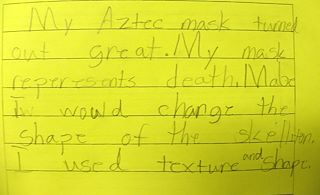 My Aztec mask turned
out great. My mask
reperesents death. Mabe
I would change the
shape of the skelliten.
I used texture and shape.